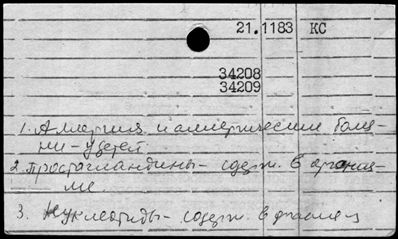 21.1183 КС
34208
34209
1. Аллергия и аллергические болез-
ни - у детей
2. Простагландины - содерж. в организ-
ме
3. Нуклеотиды - содерж. в